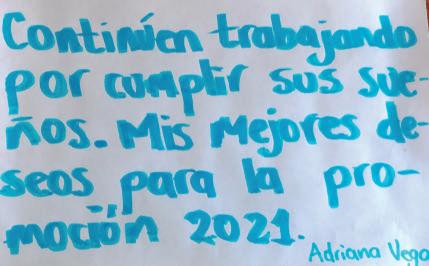 Continúen trabajando
por cumplir sus sue-
ños. Mis mejores de-
seos para la pro-
moción 2021.
Adriana Vega